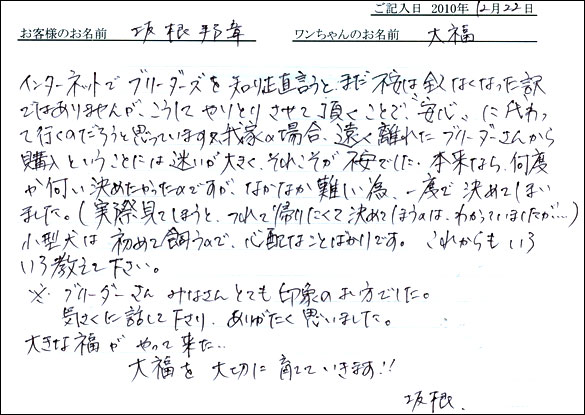 ご記入日 2010年12月22日
お客様のお名前 坂根邦章 ワンちゃんのお名前 大福
インターネットでブリーダーズを知り正直言うと、まだ不安は全くなくなった訳
ではありませんが、こうしてやりとりさせて頂くことで"安心"に代わっ
て行くのだろうと思っています。我家の場合、遠く離れたブリーダーさんから
購入ということには迷いが大きく、それこそが不安でした。本来なら、何度
か伺い決めたかったのですが、なかなか難しい為、一度で決めてしまい
ました。(実際見てしまうと、つれて帰りたくて決めてしまうのは、わかっていましたが…)
小型犬は初めて飼うので、心配なことばかりです。これからもいろ
いろ教えて下さい。
※ブリーダーさんみなさんとても印象のお方でした。
気さくに話して下さり、ありがたく思いました。
大きな福がやって来た…
大福を大切に育てていきます!!
坂根.